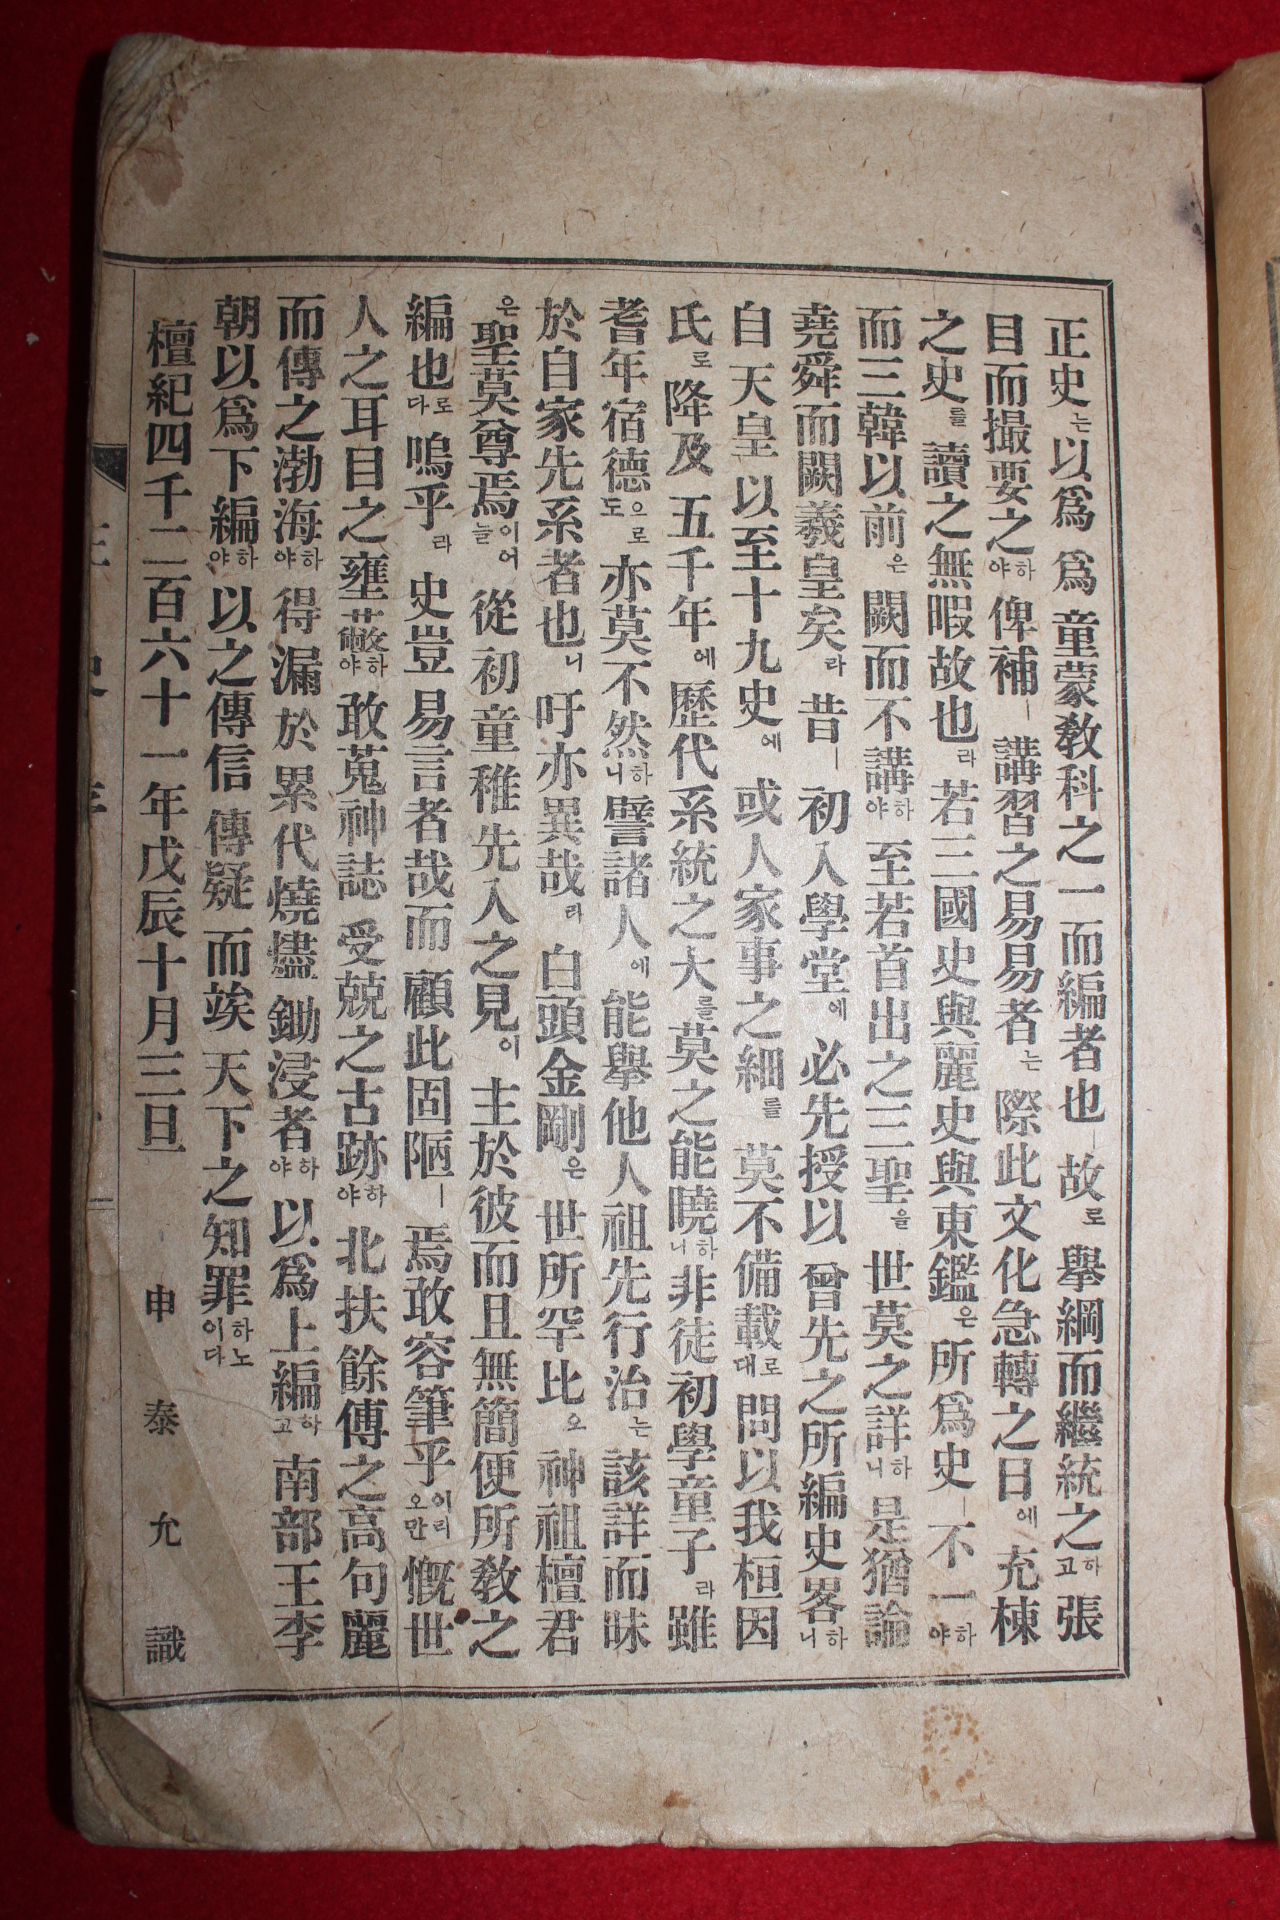 正史는以爲 爲童蒙敎科之一而編者也ㅣ故로 擧綱而繼統之하고張
目而撮要之하야 俾補ㅣ 講習之易易者는 際此文化急轉之日에 充棟
之史를 讀之無暇故也라 若三國史與麗史與東鑑은 所爲史ㅣ不一하야
而三韓以前은 闕而不講하야 至若首出之三聖을 世莫之詳하니 是猶論
堯舜而闕羲皇矣라 昔ㅣ 初入學堂에 必先授以 曾先之所編史畧하니
自 天皇以至十九史에 或人家事之細를 莫不備載로대 問以我桓因
氏로 降及五千年에 歷代系統之大를莫之能曉하니非徒初學童子라雖
耆年宿德으로도 亦莫不然하니譬諸人에 能擧他人祖先行治는 該詳而昧
於自家先系者也니 吁亦異哉라 白頭金剛은 世所罕比오 神祖檀君
은聖莫尊焉이어늘 從初童稚先入之見이 主於彼而且無簡便所敎之
編也로다 嗚乎라 史豈易言者哉而顧此固陋ㅣ焉敢容筆乎이리오만 慨世
人之耳目之壅蔽하야 敢蒐神誌 受兢之古跡하야 北扶餘傅之高句麗
而傳之渤海하야 得漏於累代燒燼鋤浸者하야 以爲上編하고 南部王李
朝以爲下編하야 以之傳信傳疑 而竢天下之知罪하노이다
檀紀四千二百六十一年戊辰十月三日 申泰允識